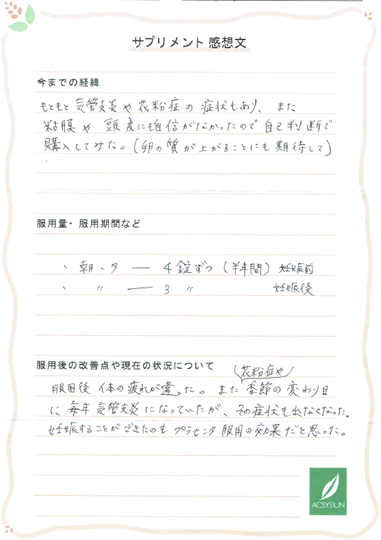 サプリメント 感想文
今までの経緯
もともと気管支炎や花粉症の症状もあり、また
粘膜や頭皮にも自信がなかったので自己判断で
購入してみた。(卵の質が上がることにも期待して)
服用量・服用期間など
、朝、夕 ― 4錠ずつ (半年間) 妊娠前
、 〃 ― 3 〃 妊娠後
服用後の改善点や現在の状況について
花粉症や
服用後 体の疲れが違った。また季節の変わり目
に毎年気管支炎になっていたが、その症状も出なくなった。
妊娠することができたのもプラセンタ服用の効果だと思った。
ACSYSUN